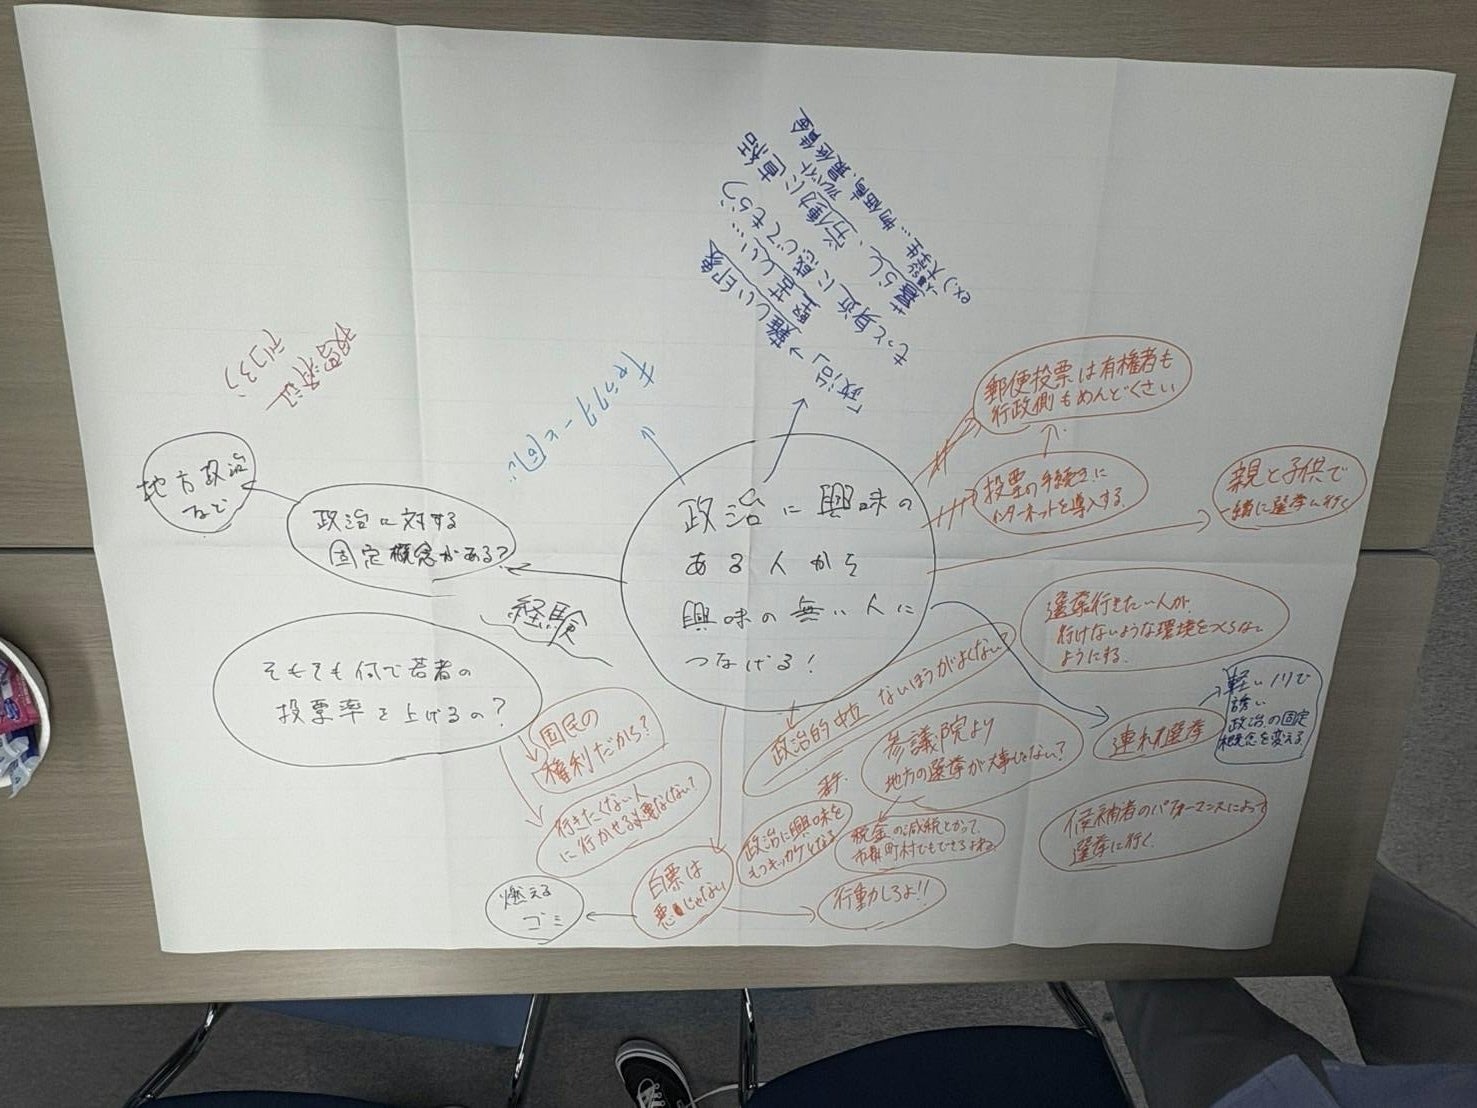 政治に興味の
ある人から
興味の無い人に
つなげる!
「政治」→難しい印象
堅苦しい…
もっと身近に感じてもらう
暮らし、労働力に直結
一人暮らし アルバイト
ex.)大学生…物価高、最低賃金
郵便投票は有権者も
行政側もめんどくさい
投票の手続きに
インターネットを導入する.
親と子供で
一緒に選挙に行く
選挙行きたい人が
行けないような環境をつくらない
ようにする.
連れ選挙
軽いノリで
誘い
政治の固定
概念を変える
候補者のパフォーマンスによって
選挙に行く.
政治的中立 ないほうがよくない?
参議院より
地方の選挙が大事じゃない?
税金の減税とかって、
市町村でもできるよね?
政治に興味を
もつキッカケとなる
白票は
悪じゃない
行動しろよ!!
燃える
ゴミ
国民の
権利だから?
行きたくない人
に行かせる必要なくない?
そもそも何で若者の
投票率を上げるの?
経験
政治に対する
固定概念がある?
地方政治
など
投票済証